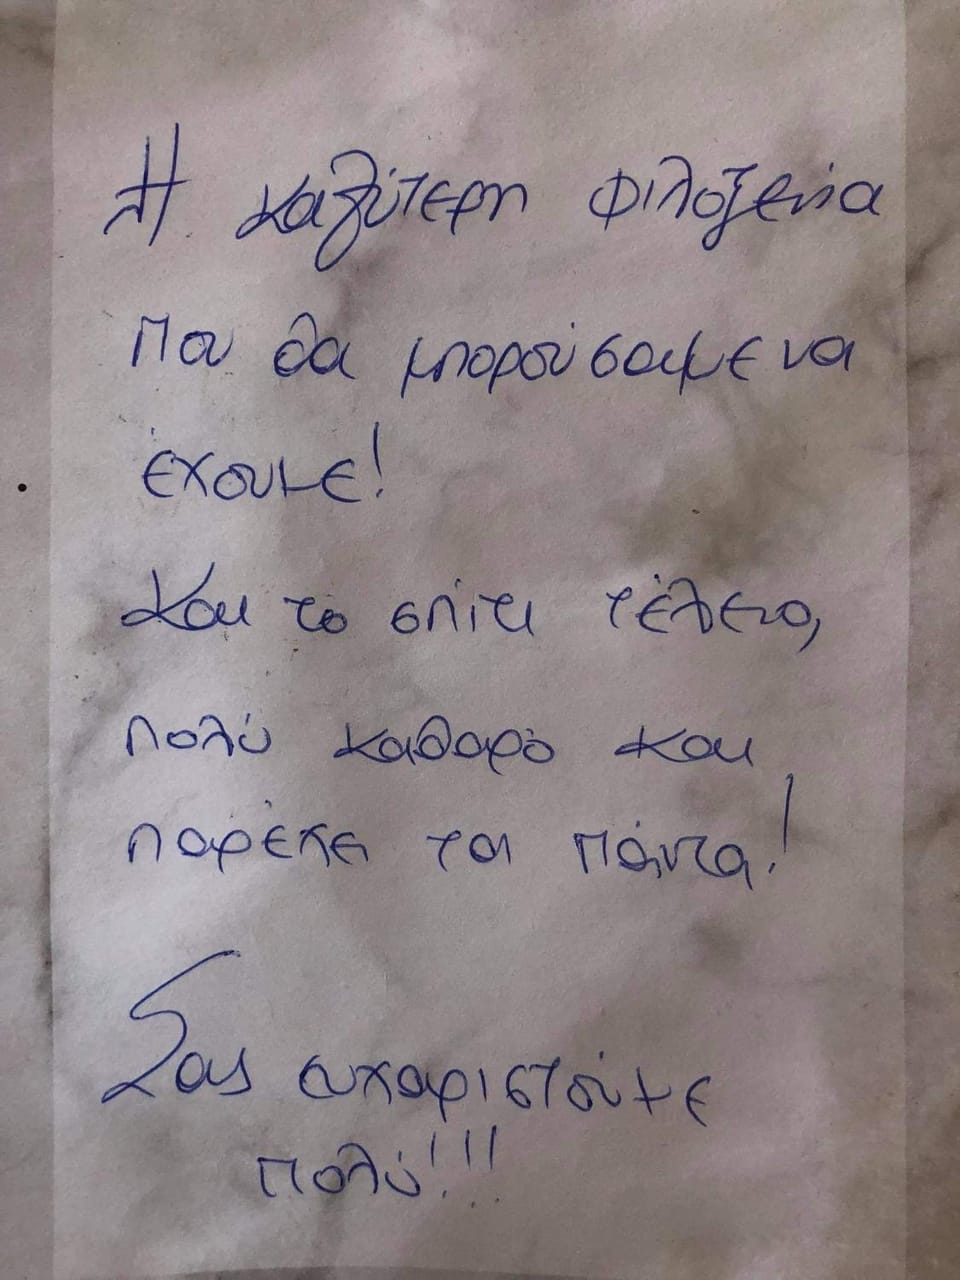 Η καλύτερη φιλοξενία
που θα μπορούσαμε να
έχουμε!
Και το σπίτι τέλειο,
πολύ καθαρό και
παρέχει τα πάντα!
Σας ευχαριστούμε
πολύ!!!